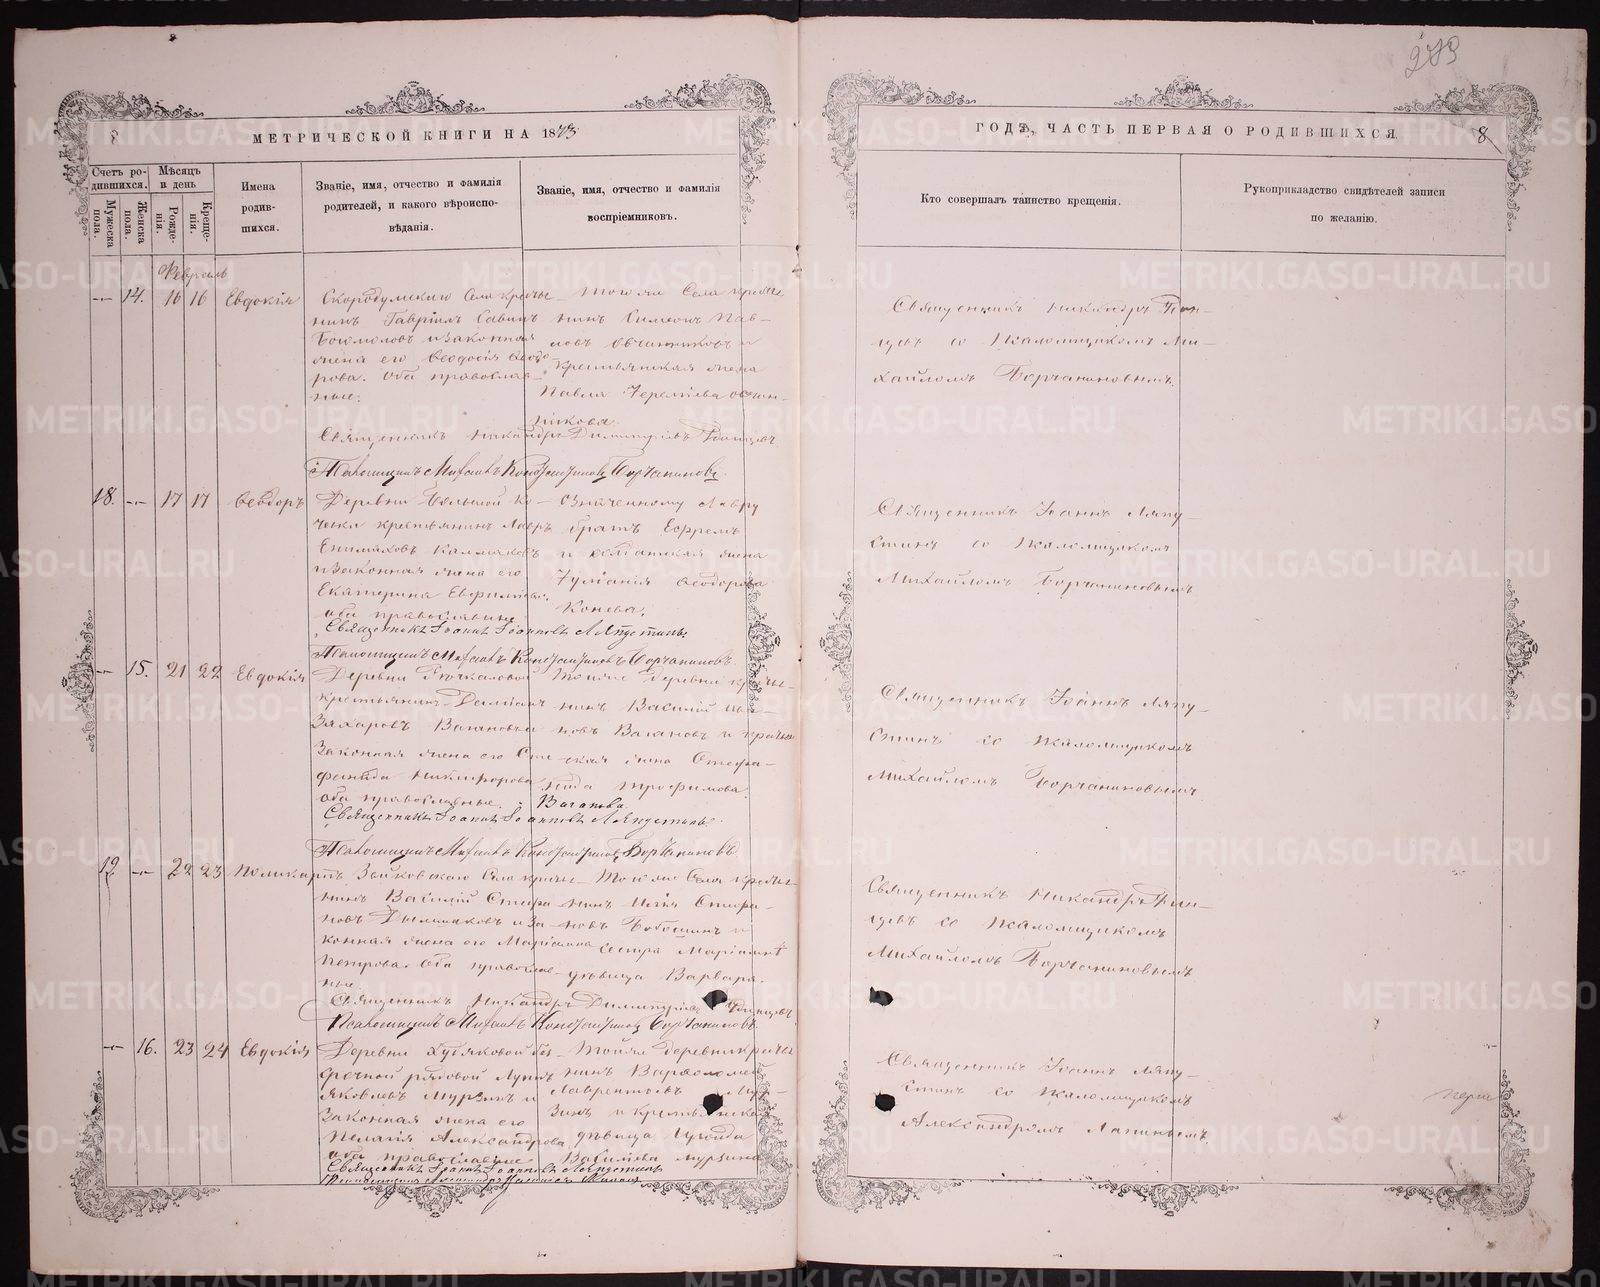 293
8
МЕТРИЧЕСКОЙ КНИГИ НА 1873
ГОДЪ, ЧАСТЬ ПЕРВАЯ О РОДИВШИХСЯ
8
Счетъ ро-
дившихся.
Мѣсяцъ
и день
Мужеска
пола.
Женска
пола.
Рожде-
нія.
Креще-
нія.
Имена
родив-
шихся.
Званіе, имя, отчество и фамилія
родителей, и какого вѣроиспо-
вѣданія.
Званіе, имя, отчество и фамилія
воспріемниковъ.
Кто совершалъ таинство крещенія.
Рукоприкладство свидѣтелей записи
по желанію.
Февраль
14. 16 16 Евдокія
Скородумскаго Села кресть-
нинъ Гавріилъ Савинъ
Богомоловъ и законная
жена его Ѳеодосія Ѳеодо
рова. Оба православ-
ные.
Тогоже Села кресть
нинъ Симеонъ Пав-
ловъ Овчинниковъ и
крестьянская жена
Павла Иереміева Овчин-
никова.
Священникъ Никандръ
со Псаломщикомъ Ми-
хайломъ Борчаниновымъ.
Священникъ Никандръ Димитріевъ
Псаломщикъ Михаилъ Константиновъ Борчаниновъ.
18. 17 17 Ѳеодоръ
Деревни Большой Ко-
чевки крестьянинъ Лавръ
Епимаховъ Калмаковъ
и законная жена его
Екатерина Евфиміева.
оба православные
Означенному Лавру
братъ Ефремъ
и солдатская жена
Ѳеодорова
Конева.
Священникъ Іоаннъ Ляпу-
стинъ со Псаломщикомъ
Михайломъ Борчаниновымъ
Священникъ Іоаннъ Іоанновъ Ляпустинъ.
Псаломщикъ Михаилъ Константиновъ Борчаниновъ.
15. 21 22 Евдокія
Деревни Бочкаловой
крестьянинъ
Захаровъ Вагановъ и
Законная жена его Сте
фанида Никифорова
оба православные.
Тойже деревни кресть-
нинъ Василій Ива-
новъ Вагановъ и кресть
ская жена Стефа-
нида Трофимова
Ваганова.
Священникъ Іоаннъ Ляпу-
стинъ со Псаломщикомъ
Михайломъ Борчаниновымъ
Священникъ Іоаннъ Іоанновъ Ляпустинъ.
Псаломщикъ Михаилъ Константиновъ Борчаниновъ
19. 22 23 Поликарпъ
Зайковскаго Села кресть-
нинъ Василій Стефа
новъ и За-
конная жена его Маріамна
Петрова. Оба православ-
ные.
Тогоже Села кресть-
нинъ Илія Стефа-
новъ Бобошинъ и
сестра Маріамнѣ
дѣвица Варвара.
Священникъ Никандръ
со Псаломщикомъ
Михайломъ Борчаниновымъ
Священникъ Никандръ Димитріевъ
Псаломщикъ Михаилъ Константиновъ Борчаниновъ.
16. 23 24 Евдокія
Деревни Худяковой без-
срочной рядовой Лукa
Яковлевъ Мурзинъ и
Законная жена его
Пелагія Александрова
оба православные
Тойже деревни кресть
нинъ Варѳоломей
Лаврентьевъ Мур-
зинъ и крестьянская
дѣвица
Васильева Мурзина
Священникъ Іоаннъ Ляпу-
стинъ со Псаломщикомъ
Александромъ Лапинымъ.
Священникъ Іоаннъ Іоанновъ Ляпустинъ